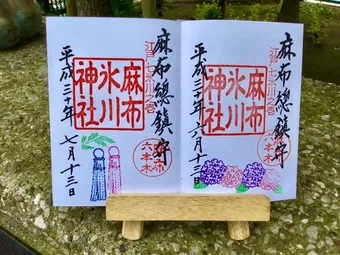 麻布總鎮守
江戸七氷川之壱
麻布
氷川
神社
六本木
平成三十年 六月十三日
麻布總鎮守
江戸七氷川之壱
麻布
氷川
神社
六本木
平成三十年 七月十三日